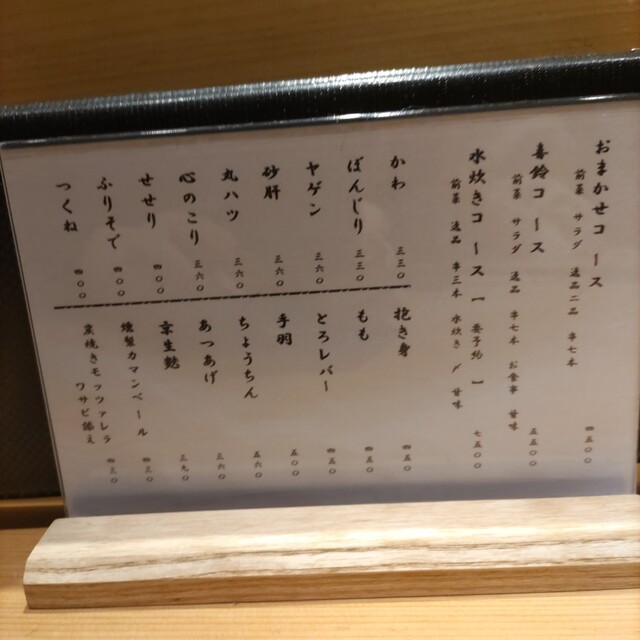 おまかせコース
前菜 サラダ 逸品二品 串七本
四五〇〇
喜鈴コース
前菜 サラダ 逸品 串七本 お食事 甘味
五五〇〇
水炊きコース【要予約】
前菜 逸品 串三本 水炊き 〆 甘味
七五〇〇
かわ 三三〇
ぼんじり 三三〇
ヤゲン 三六〇
砂肝 三六〇
丸ハツ 三六〇
心のこり 三六〇
せせり 四〇〇
ふりそで 四〇〇
つくね 四〇〇
抱き身 四五〇
もも 四五〇
とろレバー 四五〇
手羽 五〇〇
ちょうちん 五六〇
あつあげ 三六〇
京生麩 三九〇
燻製カマンベール 四三〇
炭焼きモッツァレラ
ワサビ添え 四三〇